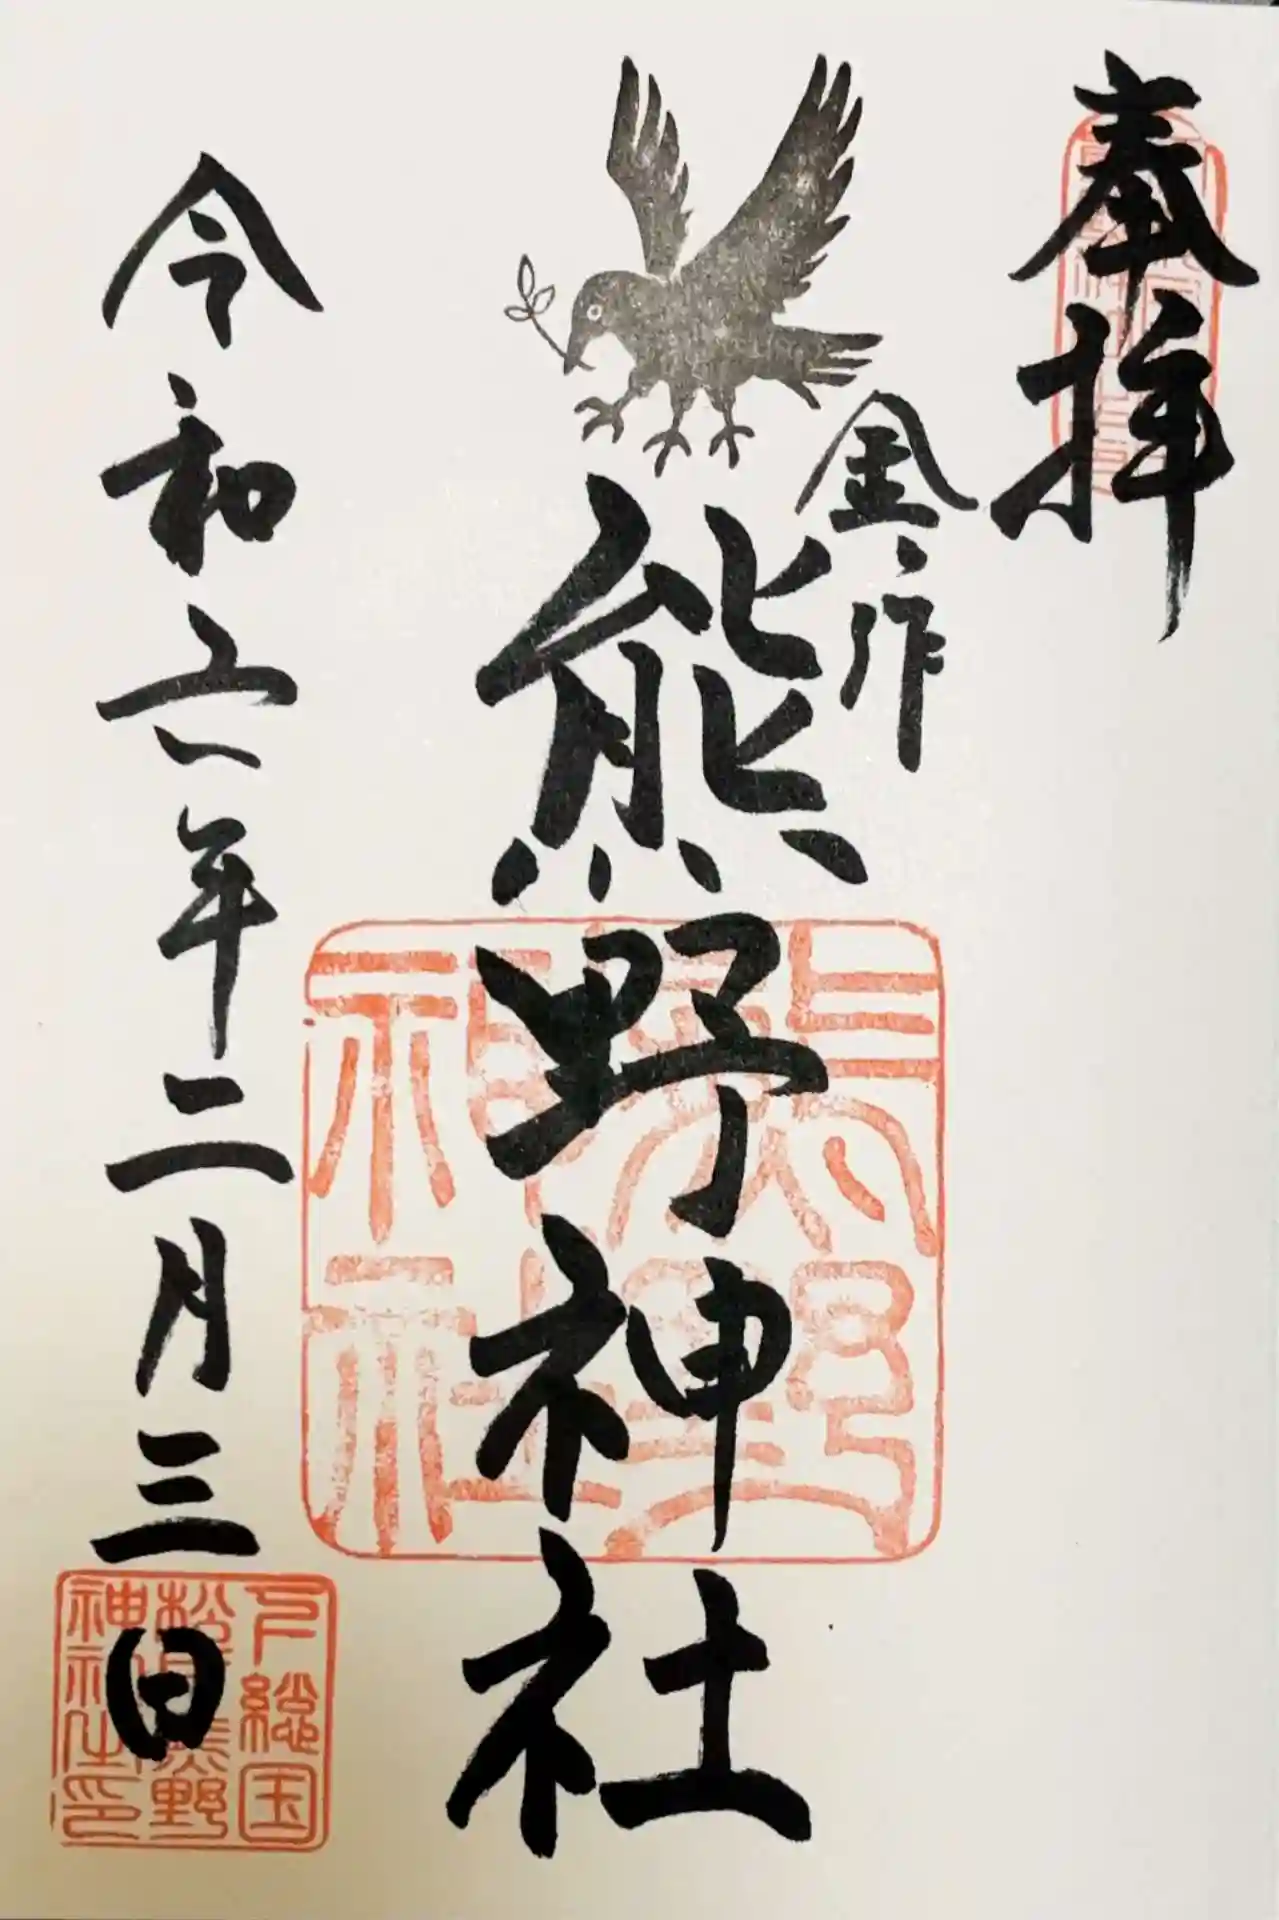 奉拝
金作
熊野神社
令和六年二月三日
熊野
神社
下総国
松戸熊野
神社之印